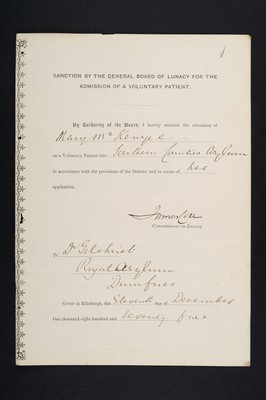 SANCTION BY THE GENERAL BOARD OF LUNACY FOR THE
ADMISSION OF A VOLUNTARY PATIENT.
By Authority of the Board, I hereby sanction the admission of
Mary McKenzie
as a Voluntary Patient into Southern Counties Asylum
in accordance with the provisions of the Statute, and in terms of her
application.
Commissioner in Lunacy.
To Dr Gilchrist
Royal Asylum
Dumfries
Given at Edinburgh, this Eleventh day of December
One thousand eight hundred and seventy five